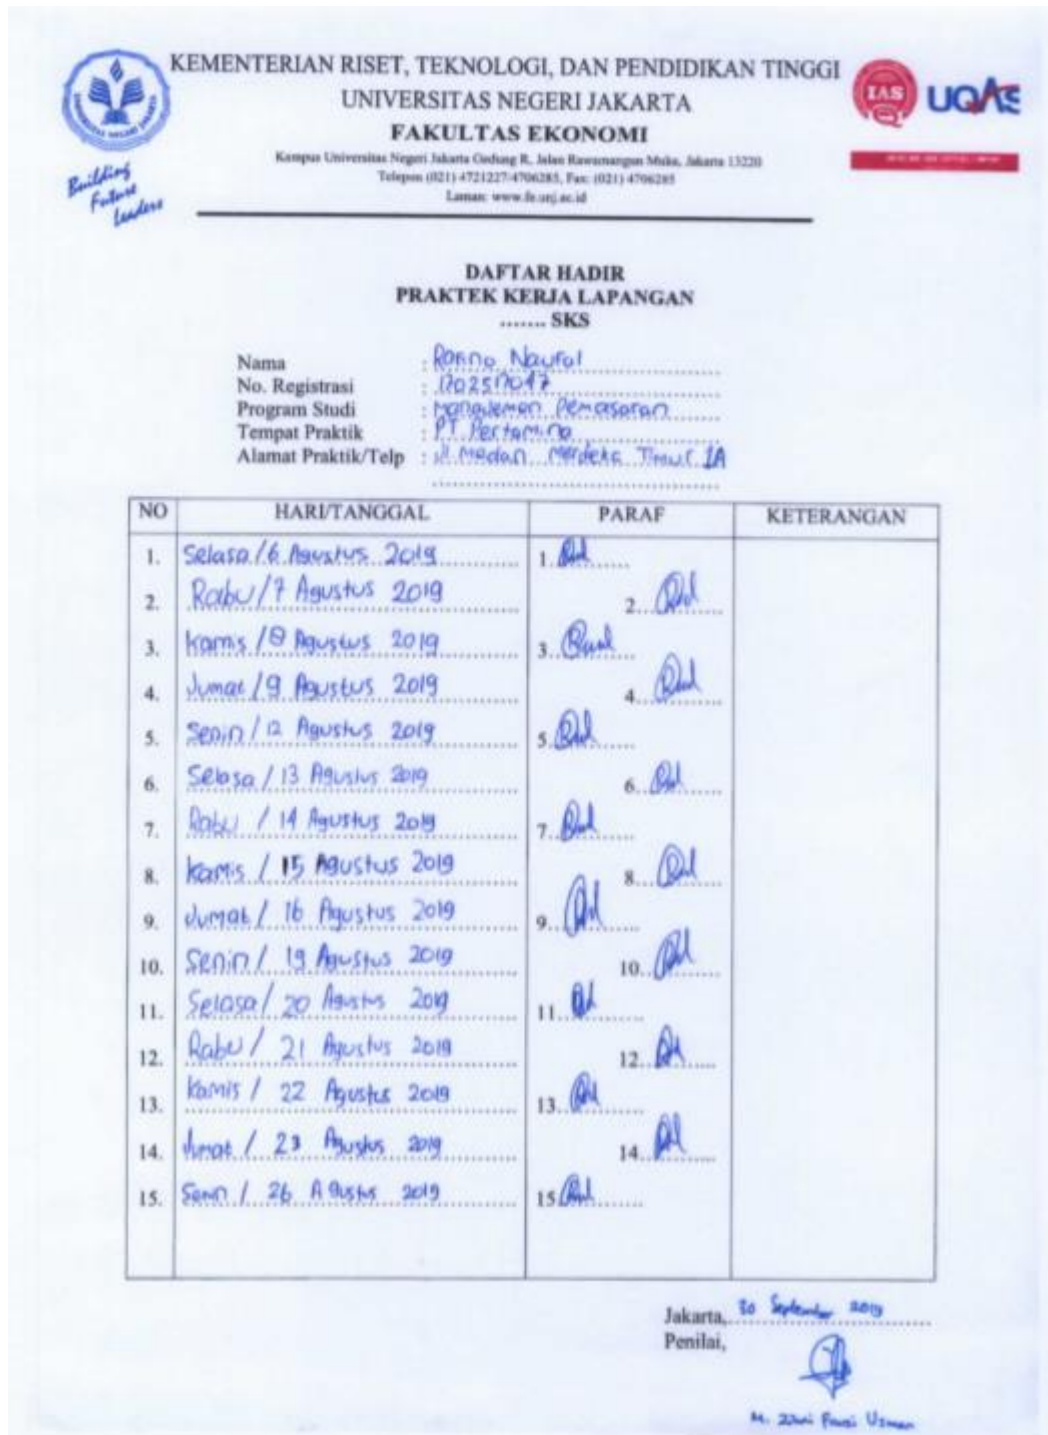 KEMENTERIAN RISET, TEKNOLOGI, DAN PENDIDIKAN TINGGI
UNIVERSITAS NEGERI JAKARTA
FAKULTAS EKONOMI
Kampus Universitas Negeri Jakarta Gedung R, Jalan Rawamangun Muka, Jakarta 13220
Telepon (021) 4721227/4706285, Fax: (021) 4706285
Laman: www.fe.unj.ac.id
Building
Future
Leaders
IAS
UQAS
DAFTAR HADIR
PRAKTEK KERJA LAPANGAN
....... SKS
Nama : Naufal
No. Registrasi : 1702517047
Program Studi : Manajemen Pemasaran
Tempat Praktik : PT Pertamina
Alamat Praktik/Telp : Jl Medan Merdeka Timur 1A
NO HARI/TANGGAL PARAF KETERANGAN
1. Selasa/6 Agustus 2019 1.
2. Rabu/7 Agustus 2019 2.
3. Kamis/8 Agustus 2019 3.
4. Jumat/9 Agustus 2019 4.
5. Senin/12 Agustus 2019 5.
6. Selasa/13 Agustus 2019 6.
7. Rabu/14 Agustus 2019 7.
8. Kamis/15 Agustus 2019 8.
9. Jumat/16 Agustus 2019 9.
10. Senin/19 Agustus 2019 10.
11. Selasa/20 Agustus 2019 11.
12. Rabu/21 Agustus 2019 12.
13. Kamis/22 Agustus 2019 13.
14. Jumat/23 Agustus 2019 14.
15. Senin/26 Agustus 2019 15.
Jakarta, 30 September 2019
Penilai,
M. Usman